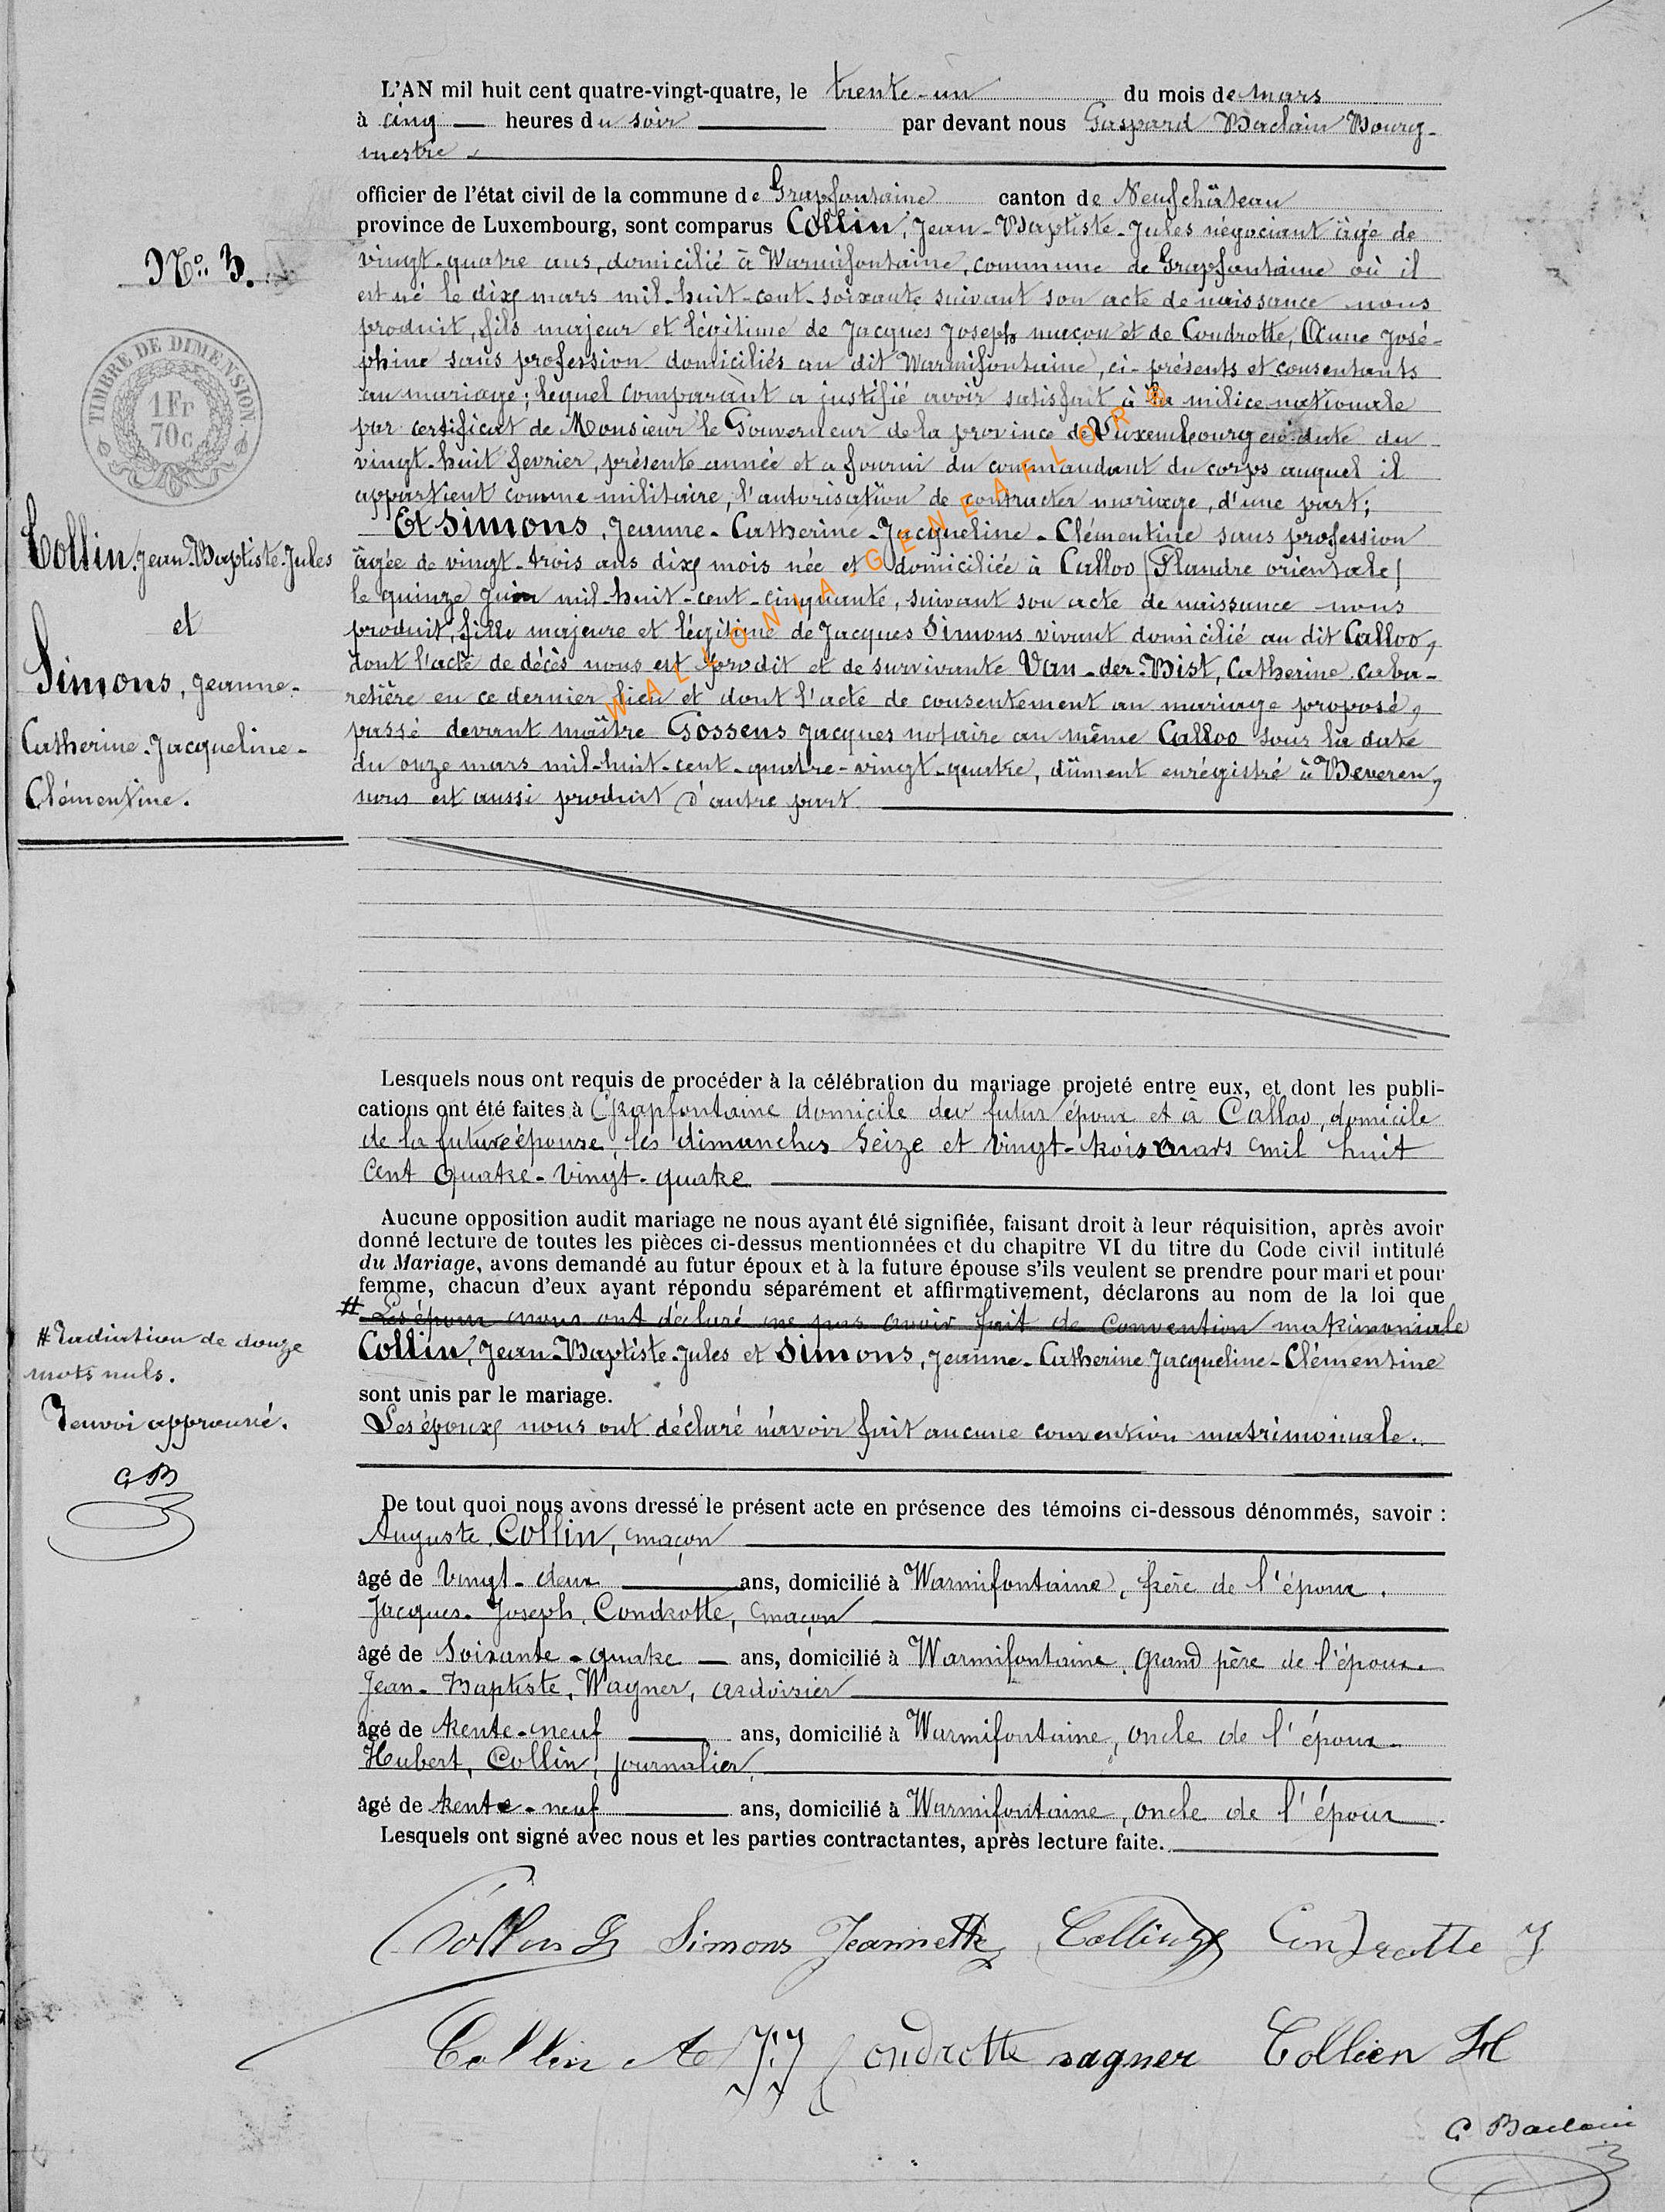 L'AN mil huit cent quatre-vingt-quatre, le trente-un du mois de mars
à cinq heures du soir par devant nous Gaspard Baclain Bourg-
mestre
officier de l'état civil de la commune de Grapfontaine canton de Neufchâteau
province de Luxembourg, sont comparus Collin, Jean-Baptiste-Jules négociant âgé de
vingt-quatre ans, domicilié à Warmifontaine, commune de Grapfontaine où il
est né le dix mars mil-huit-cent-soixante suivant son acte de naissance nous
produit, fils majeur et légitime de Jacques Joseph maçon et de Condrotte, Anne José-
phine sans profession domiciliés au dit Warmifontaine, ci-présents et consentants
au mariage; lequel comparant a justifié avoir satisfait à la milice nationale
par certificat de Monsieur le Gouverneur de la province de Luxembourg en date du
vingt-huit fevrier, présente année et a fourni du commandant du corps auquel il
appartient comme militaire, l'autorisation de contracter mariage, d'une part;
Et Simons, Jeanne-Catherine-Jacqueline-Clémentine sans profession
âgée de vingt-trois ans dix mois née et domiciliée à Calloo (Flandre orientale)
le quinze juin mil-huit-cent-cinquante, suivant son acte de naissance nous
produit, fille majeure et légitime de Jacques Simons vivant domicilié au dit Calloo,
dont l'acte de décès nous est prodit et de survivante Van-der-Bist, Catherine caba-
retière en ce dernier lieu et dont l'acte de consentement au mariage proposé,
passé devant maître Gossens Jacques notaire au même Calloo sous la date
du onze mars mil-huit-cent-quatre-vingt-quatre, dûment enrégistré à Beveren,
nous est aussi produit d'autre part.
No. 3.
TIMBRE DE DIMENSION
1 Fr
70c
Collin, Jean-Baptiste-Jules
et
Simons, Jeanne-
Catherine-Jacqueline-
Clémentine.
WALLONIA-GENEAFLOR©
Lesquels nous ont requis de procéder à la célébration du mariage projeté entre eux, et dont les publi-
cations ont été faites à Grapfontaine domicile du futur époux et à Calloo, domicile
de la future épouse, les dimanches Seize et Vingt-trois mars mil huit
Cent quatre-Vingt-quatre
Aucune opposition audit mariage ne nous ayant été signifiée, faisant droit à leur réquisition, après avoir
donné lecture de toutes les pièces ci-dessus mentionnées et du chapitre VI du titre du Code civil intitulé
du Mariage, avons demandé au futur époux et à la future épouse s'ils veulent se prendre pour mari et pour
femme, chacun d'eux ayant répondu séparément et affirmativement, déclarons au nom de la loi que
# Les époux nous ont déclaré ne pas avoir fait de convention matrimoniale
Collin, Jean-Baptiste-Jules et Simons, Jeanne-Catherine Jacqueline-Clémentine
sont unis par le mariage.
Les époux nous ont déclaré n'avoir fait aucune convention matrimoniale.
# Radiation de douze
mots nuls.
Renvoi approuvé.
GB
De tout quoi nous avons dressé le présent acte en présence des témoins ci-dessous dénommés, savoir :
Auguste, Collin, maçon
âgé de Vingt-deux ans, domicilié à Warmifontaine, frère de l'époux.
Jacques-Joseph, Condrotte, maçon
âgé de Soixante-quatre ans, domicilié à Warmifontaine, Grand père de l'époux.
Jean-Baptiste, Wagner, ardoisier
âgé de trente-neuf ans, domicilié à Warmifontaine, oncle de l'époux
Hubert, Collin, journalier,
âgé de trente-neuf ans, domicilié à Warmifontaine, oncle de l'époux.
Lesquels ont signé avec nous et les parties contractantes, après lecture faite.
Simons Jeannette Condrotte J
Collin A JJ Condrotte Collien H
G. Baclain